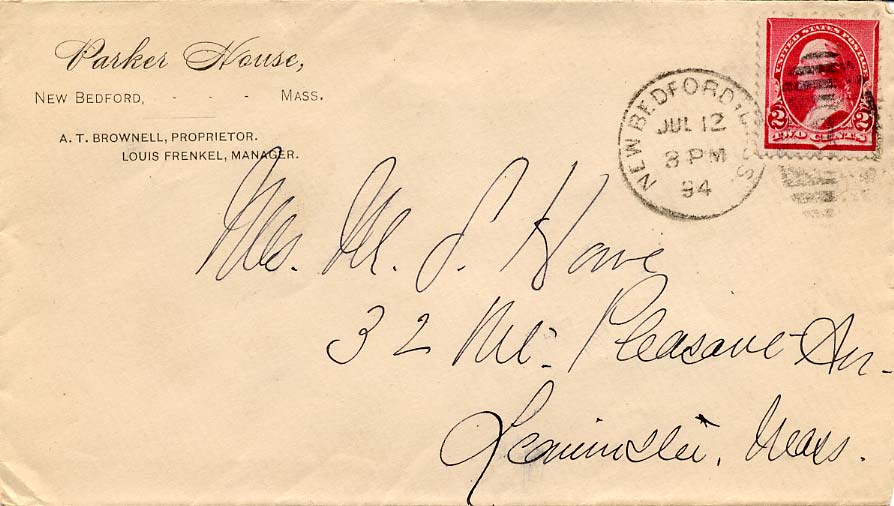 Parker House,
NEW BEDFORD, - - - MASS.
A. T. BROWNELL, PROPRIETOR.
LOUIS FRENKEL, MANAGER.
UNITED STATES POSTAGE
2 2
TWO CENTS
NEW BEDFORD
JUL 12
3 PM
94
Mrs. M. S. Howe
32 Mt. Pleasant Av.
Leominster, Mass.